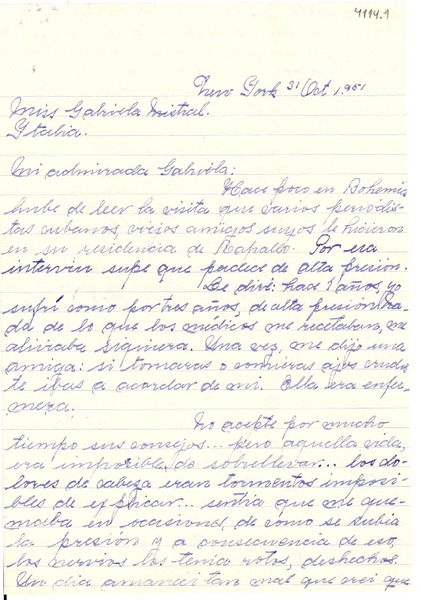 4114.1
New York 31 Oct 1951
Miss Gabriela Mistral.
Italia.
Mi admirada Gabriela:
Hace poco en Bohemia
hube de leer la visita que varios periodis-
tas cubanos, viejos amigos suyos le hicieron
en su residencia de Rapallo. Por era
interviu supe que padece de alta presion.
Le diré: hace 9 años, yo
sufrí como por tres años, de alta presión Na-
da de lo que los medicos me recetaban, me
aliviaba siquiera. Una vez, me dijo una
amiga: si tomaras o comieras ajos crudos
te ibas a acordar de mi. Ella era enfer-
mera.
No acepte por mucho
tiempo sus consejos... pero aquella vida,
era imposible de sobrellevar... los do-
lores de cabeza eran tormentos imposi-
bles de explicar... sentia que me que-
maba en ocasiones, de como se subia
la presión y a consecuencia de eso,
los nervios los tenia rotos, deshechos.
Un dia amaneci tan mal que crei que